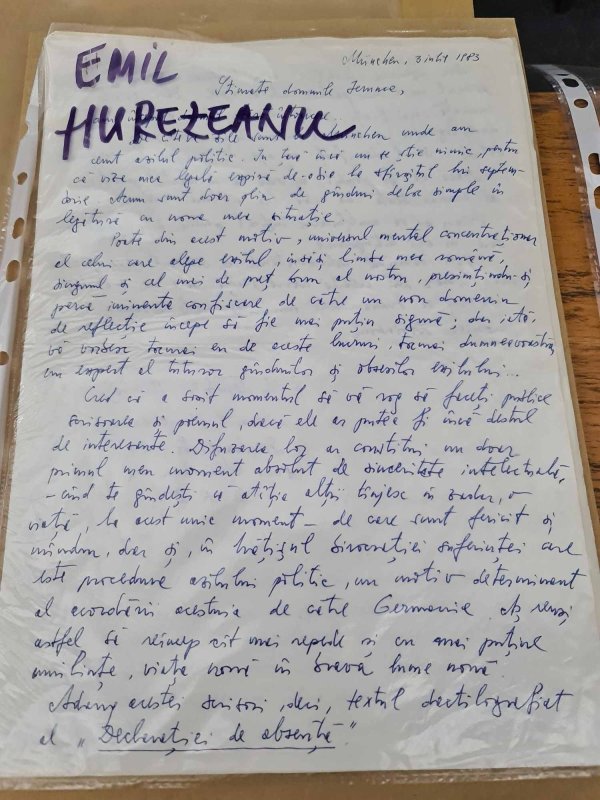 EMIL
HUREZEANU
München, 3 iulie 1983
Stimate domnule Iernnca,
de zile sunt München unde am
cerut azilul politic. În țară încă nu se știe nimic, pentru
că viza mea legală expiră de-abia la sfîrșitul lui septem-
brie. Acum sunt doar plin de gînduri deloc simple în
legătură cu noua mea situație.
Poate din acest motiv, universul mental concentraționar
al celui care alege exilul, însăși limba mea română,
singurul și cel mai de preț bun al nostru, presimțindu-și
parcă iminenta confiscare de către un nou domeniu
de reflecție începe să fie mai puțin sigură; dar iată,
vă vorbesc tocmai eu de aceste lucruri, tocmai dumneavoastră,
un expert al tuturor gîndurilor și obsesiilor exilului...
Cred că a sosit momentul să vă rog să faceți publice
scrisoarea și poemul, dacă ele ar putea fi încă destul
de interesante. Difuzarea lor ar constitui nu doar
primul meu moment absolut de sinceritate intelectuală,
- cînd te gîndești că atîția alții tînjesc în zadar, o
viață, la acest unic moment - de care sunt fericit și
mîndru, dar și, în hățișul birocrației suferinței care
este procedura azilului politic, un motiv determinant
al acordării acestuia de către Germania. Aș reuși
astfel să reîncep cît mai repede și cu mai puține
umilințe, viața nouă în brava lume nouă.
Adaug acestei scrisori, deci, textul dactilografiat
al "Declarației de absență".